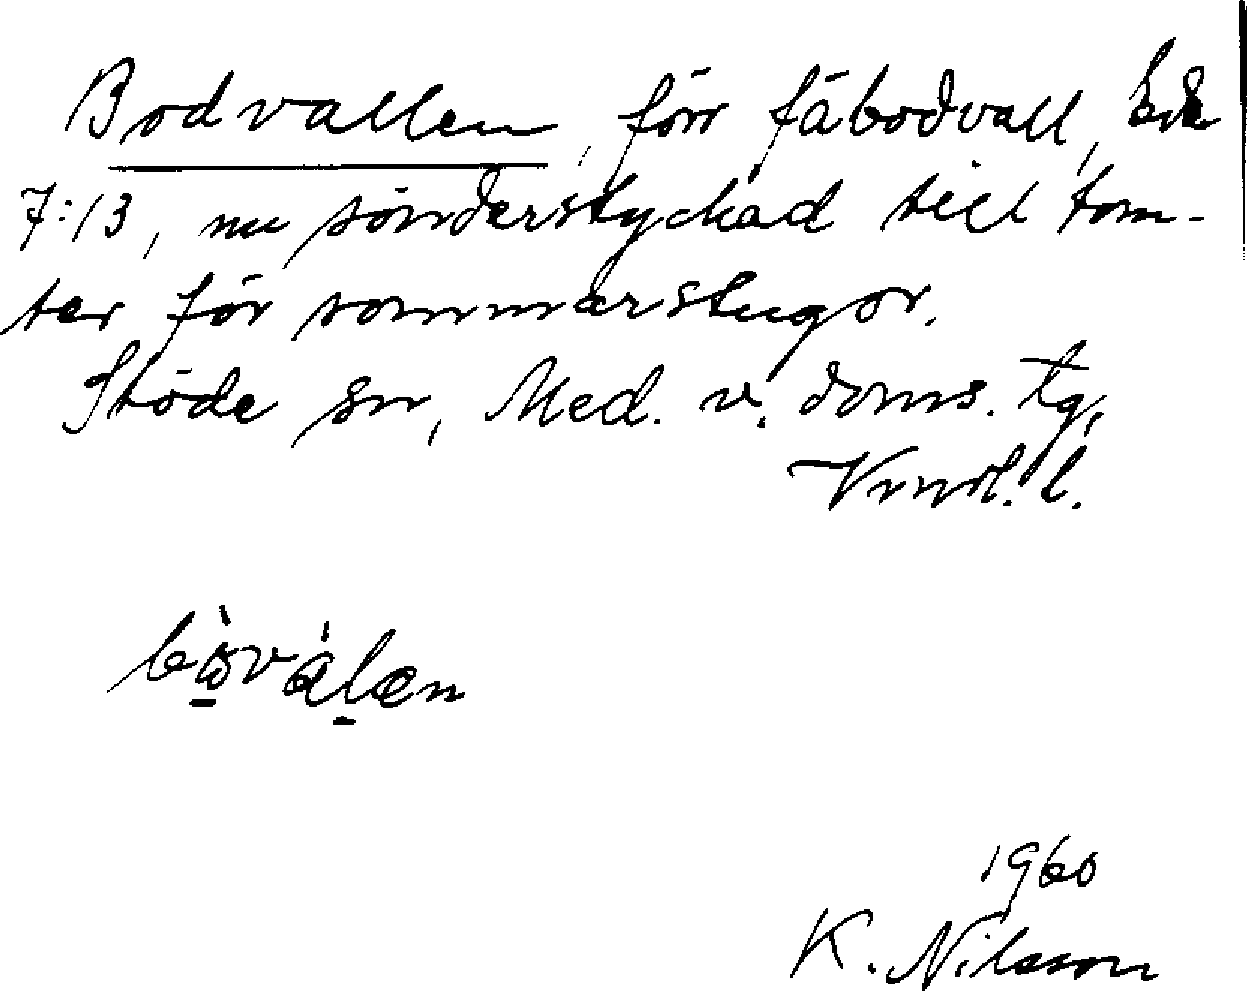 Bodvallen, förr fäbodvall,
7:13, nu sönderstyckad till tom-
ter för sommarstugor.
Stöde sn, Med. v. doms. tg,
Vrnl. l.
1960
K. Nilsson